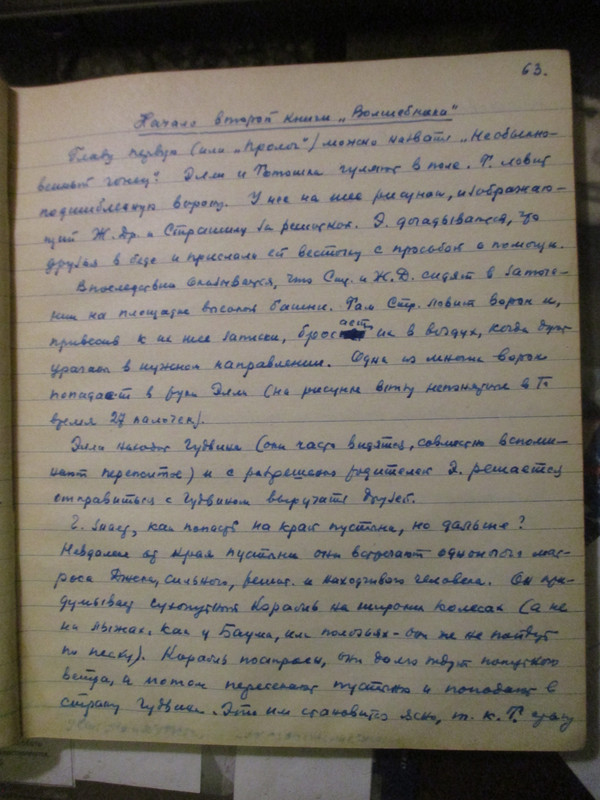 63.
Начало второй книги „Волшебника“
Главу первую (или „Пролог“) можно назвать „Необыкно-
венный гонец“. Элли и Тотошка гуляют в поле. Т. ловит
подшибленную ворону. У нее на шее рисунок, изображаю-
щий Ж. Др. и Страшилу за решеткой. Э. догадывается, что
друзья в беде и прислали ей весточку с просьбой о помощи.
Впоследствии оказывается, что Стр. и Ж. Д. сидят в заточе-
нии на площадке высокой башни. Там Стр. ловит ворон и,
привязав к их шее записки, бросает их в воздух, когда дует
ураган в нужном направлении. Одна из многих ворон
попадает в руки Элли (на рисунке внизу непонятные в то
время 27 палочек).
Элли находит Гудвина (они часто видятся, совместно вспоми-
нают пережитое) и с разрешения родителей Э. решается
отправиться с Гудвином выручать друзей.
Г. знает, как попасть на край пустыни, но дальше?
Невдалеке от края пустыни они встречают одноногого мат-
роса Джона, сильного, решит. и находчивого человека. Он при-
думывает сухопутный корабль на широких колесах (а не
на лыжах, как у Баума, или полозьях - они же не пойдут
по песку). Корабль построен, они долго ждут попутного
ветра, а потом пересекают пустыню и попадают в
страну Гудвина. Это им становится ясно, т. к. Т. сразу